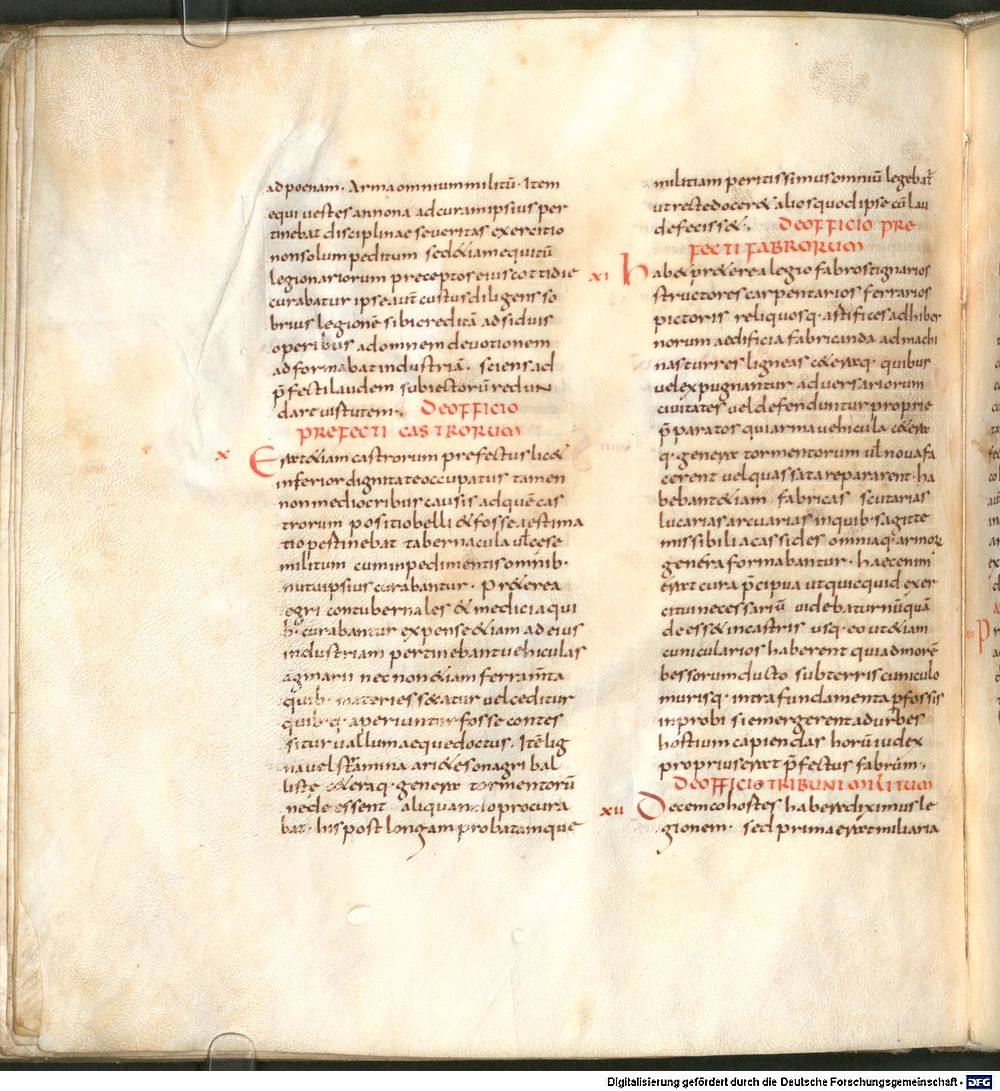 ad poenam. Arma omnium militū. Item
equi vestes annona ad curam ipsius per
tinebat disciplinae severitas exercitio
non solum peditum sed &iam equitū
legionariorum preceptos eius cottidie
curabatur ipse aut custus diligens so
brius legionē sibi creditā adsiduis
operibus ad omnem devotionem
adformabat industriā. sciens ad
p̄fecti laudem subiectorū redun
dare virtutem.
DE OFFICIO
PREFECTI CASTRORUM
x Erat &iam castrorum prefectus lic&
inferior dignitate occupatus tamen
non mediocribus causis ad quē cas
trorum positio belli & fosse aestima
tio pertinebat tabernacula vel cęse
militum cum inpedimentis omnib.
nutu ipsius curabantur. Pr&erea
egri contubernales & medici a qui
b. curabantur expense &iam ad eius
industriam pertinebant vehiculas
agmarii nec non &iam ferram̄ta
quib. materies secatur vel ceditur
quib. q. aperiuntur fosse contes
situr vallum aequedoctus. Itē lig
na vel stramina ari&es onagri bal
listę c&eraq. genera tormentorū
ne deessent aliquando procura
bat. his post longam probatamque
militiam peritissimus omniū legebat̄
ut recte docer& alios quod ipse cū lau
de fecisse&.
DE OFFICIO PRE
FECTI FABRORUM
xi Hab& pr&erea legio fabros tignarios
structores carpentarios ferrarios
pictoris reliquosq. artifices ad hiber
norum aedificia fabricanda ad machi
nas turres ligneas c&eraq. quibus
vel expugnantur adversariorum
civitates vel defenduntur proprie
p̄paratos qui arma vehicula c&era
q. genera tormentorum vel nova fa
cerent vel quassata repararent. ha
bebant &iam fabricas scutarias
lucarias arcuarias in quib. sagitte
missibilia cassides omniaq. armorū
genera formabantur. haec enim
erat cura p̄cipua ut quicquid exer
citui necessariū videbatur nūquā
deess& in castris usq. eo ut &iam
cunicularios haberent qui ad morē
bessorum ducto sub terris cuniculo
murisq. intra fundamenta p̄fossis
inprobi si emergerent ad urbes
hostium capiendas horū iudex
proprius erat p̄fectus fabrūm.
DE OFFICIS TRIBUNI MILITUM
xii Decem cohortes habere diximus le
gionem. sed prima erat miliaria
Digitalisierung gefördert durch die Deutsche Forschungsgemeinschaft - DFG